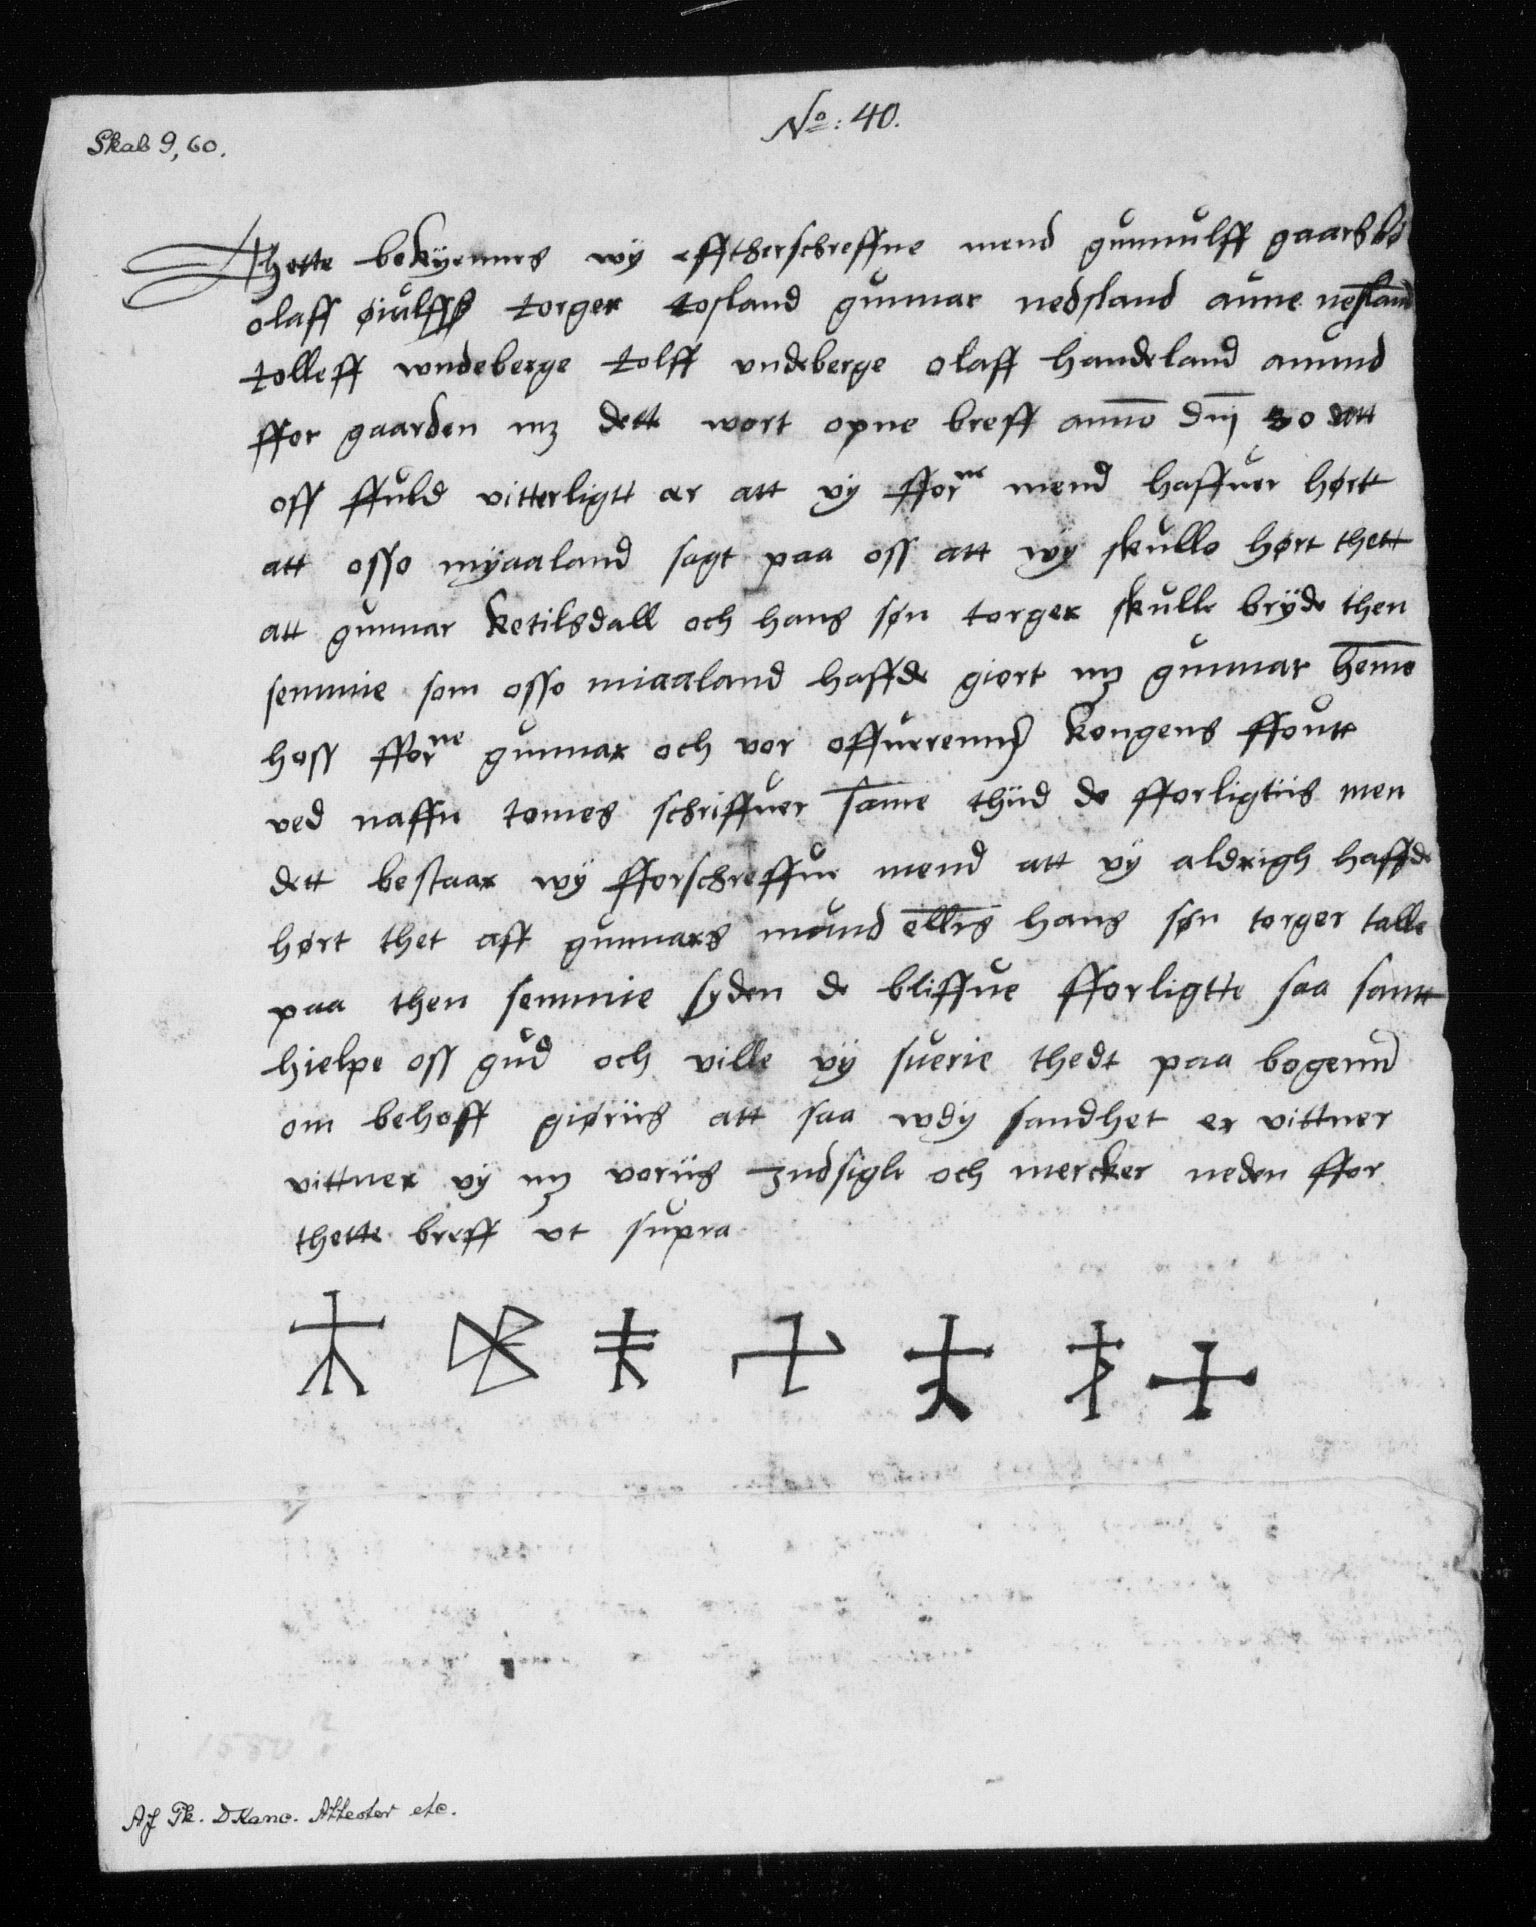 Skab 9,60.
No: 40.
Thette bekÿennes wÿ efftherschreffne mend gunnulff gaarsbø
olaff øiulff torger tosland gunnar nedsland aune nesland
tolleff wndeberge tolff vndeberge olaff handeland amund
ffor gaarden mz dett wort opne breff anno dnj 30 att
oss ffuld vitterligtt er att vÿ fforne mend haffuer hørtt
att osso myaaland sagt paa oss att wÿ skulle hørt thett
att gunnar ketilsdall och hans søn torger skulle brÿde then
semmie som osso miaaland haffde giort mz gunnar heme
hoss fforne gunnar och vor offuerennß kongens ffoutt
ved naffn tomes schriffuer same thiid de fforligtiis men
dett bestaar wÿ fforschreffne mend att vÿ aldrigh haffde
hørt thet aff gunnars mund ellis hans søn torger talle
paa then semmie syden de bliffue fforligtte saa santt
hielpe oss gud och ville vÿ suerie thedt paa bogenn
om behoff giøriis att saa wdÿ sandhet er vittner
vittner vÿ mz voriis indsigle och mercker neden ffor
thette breff vt supra
Af Tk. DKanc. Attester etc.